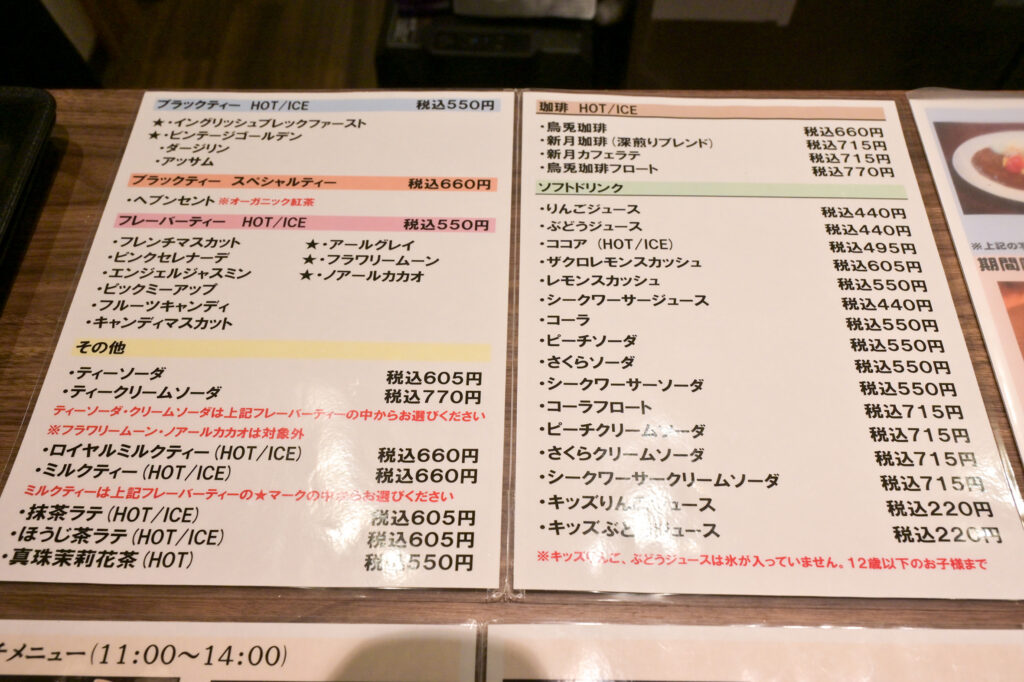 ブラックティー HOT/ICE 税込550円
★・イングリッシュブレックファースト
★・ビンテージゴールデン
・ダージリン
・アッサム
ブラックティー スペシャルティー 税込660円
・ヘブンセント ※オーガニック紅茶
フレーバーティー HOT/ICE 税込550円
・フレンチマスカット ★・アールグレイ
・ピンクセレナーデ ★・フラワリームーン
・エンジェルジャスミン ★・ノアールカカオ
・ピックミーアップ
・フルーツキャンディ
・キャンディマスカット
その他
・ティーソーダ 税込605円
・ティークリームソーダ 税込770円
ティーソーダ・クリームソーダは上記フレーバーティーの中からお選びください
※フラワリームーン・ノアールカカオは対象外
・ロイヤルミルクティー(HOT/ICE) 税込660円
・ミルクティー(HOT/ICE) 税込660円
ミルクティーは上記フレーバーティーの★マークの中からお選びください
・抹茶ラテ(HOT/ICE) 税込605円
・ほうじ茶ラテ(HOT/ICE) 税込605円
・真珠茉莉花茶(HOT) 税込550円
珈琲 HOT/ICE
・烏兎珈琲 税込660円
・新月珈琲(深煎りブレンド) 税込715円
・新月カフェラテ 税込715円
・烏兎珈琲フロート 税込770円
ソフトドリンク
・りんごジュース 税込440円
・ぶどうジュース 税込440円
・ココア (HOT/ICE) 税込495円
・ザクロレモンスカッシュ 税込605円
・レモンスカッシュ 税込550円
・シークワーサージュース 税込440円
・コーラ 税込550円
・ピーチソーダ 税込550円
・さくらソーダ 税込550円
・シークワーサーソーダ 税込550円
・コーラフロート 税込715円
・ピーチクリームソーダ 税込715円
・さくらクリームソーダ 税込715円
・シークワーサークリームソーダ 税込715円
・キッズりんごジュース 税込220円
・キッズぶどうジュース 税込220円
※キッズりんご、ぶどうジュースは氷が入っていません。12歳以下のお子様まで
※上記の
期間
メニュー(11:00〜14:00)